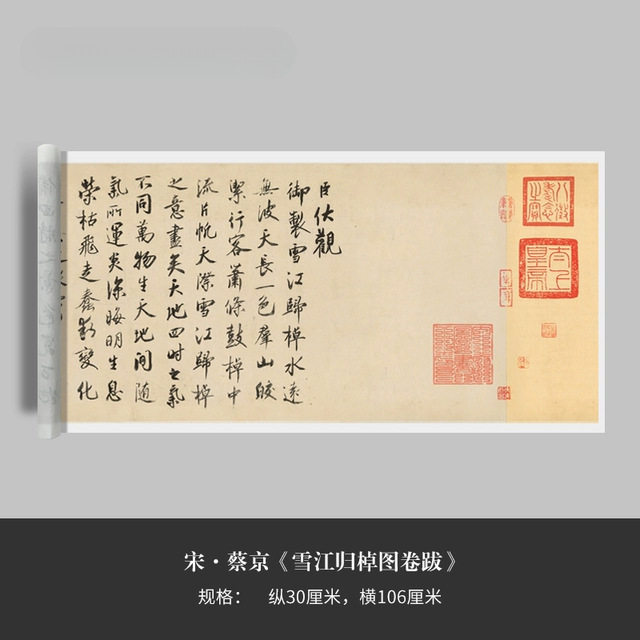 臣伏觀
御製雪江歸棹水遠
無波天長一色羣山皎
潔行客蕭條鼓棹中
流片帆天際雪江歸棹
之意盡矣天地四時之氣
不同萬物生天地間隨
氣所運炎涼晦明生息
榮枯飛走蠢動變化
八徵耄念之寶
太上皇帝
宋·蔡京《雪江归棹图卷跋》
规格： 纵30厘米，横106厘米